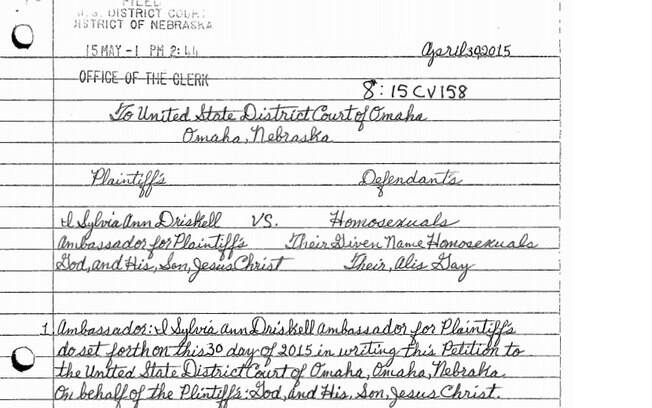 FILED
U.S. DISTRICT COURT
DISTRICT OF NEBRASKA
15 MAY -1 PM 2:44
April 30, 2015
OFFICE OF THE CLERK
8:15CV158
To United State District Court of Omaha
Omaha, Nebraska
Plaintiff's Defendant's
I Sylvia Ann Driskell VS. Homosexuals
Ambassador for Plaintiff's Their Given Name Homosexuals
God, and His, Son, Jesus Christ Their, Alis Gay
1. Ambassador: I Sylvia Ann Driskell ambassador for Plaintiff's
do set forth on this 30 day of 2015 in writing this Petition to
the United State District Court of Omaha, Omaha, Nebraska
On behalf of the Plintiff's: God, and His, Son, Jesus Christ.